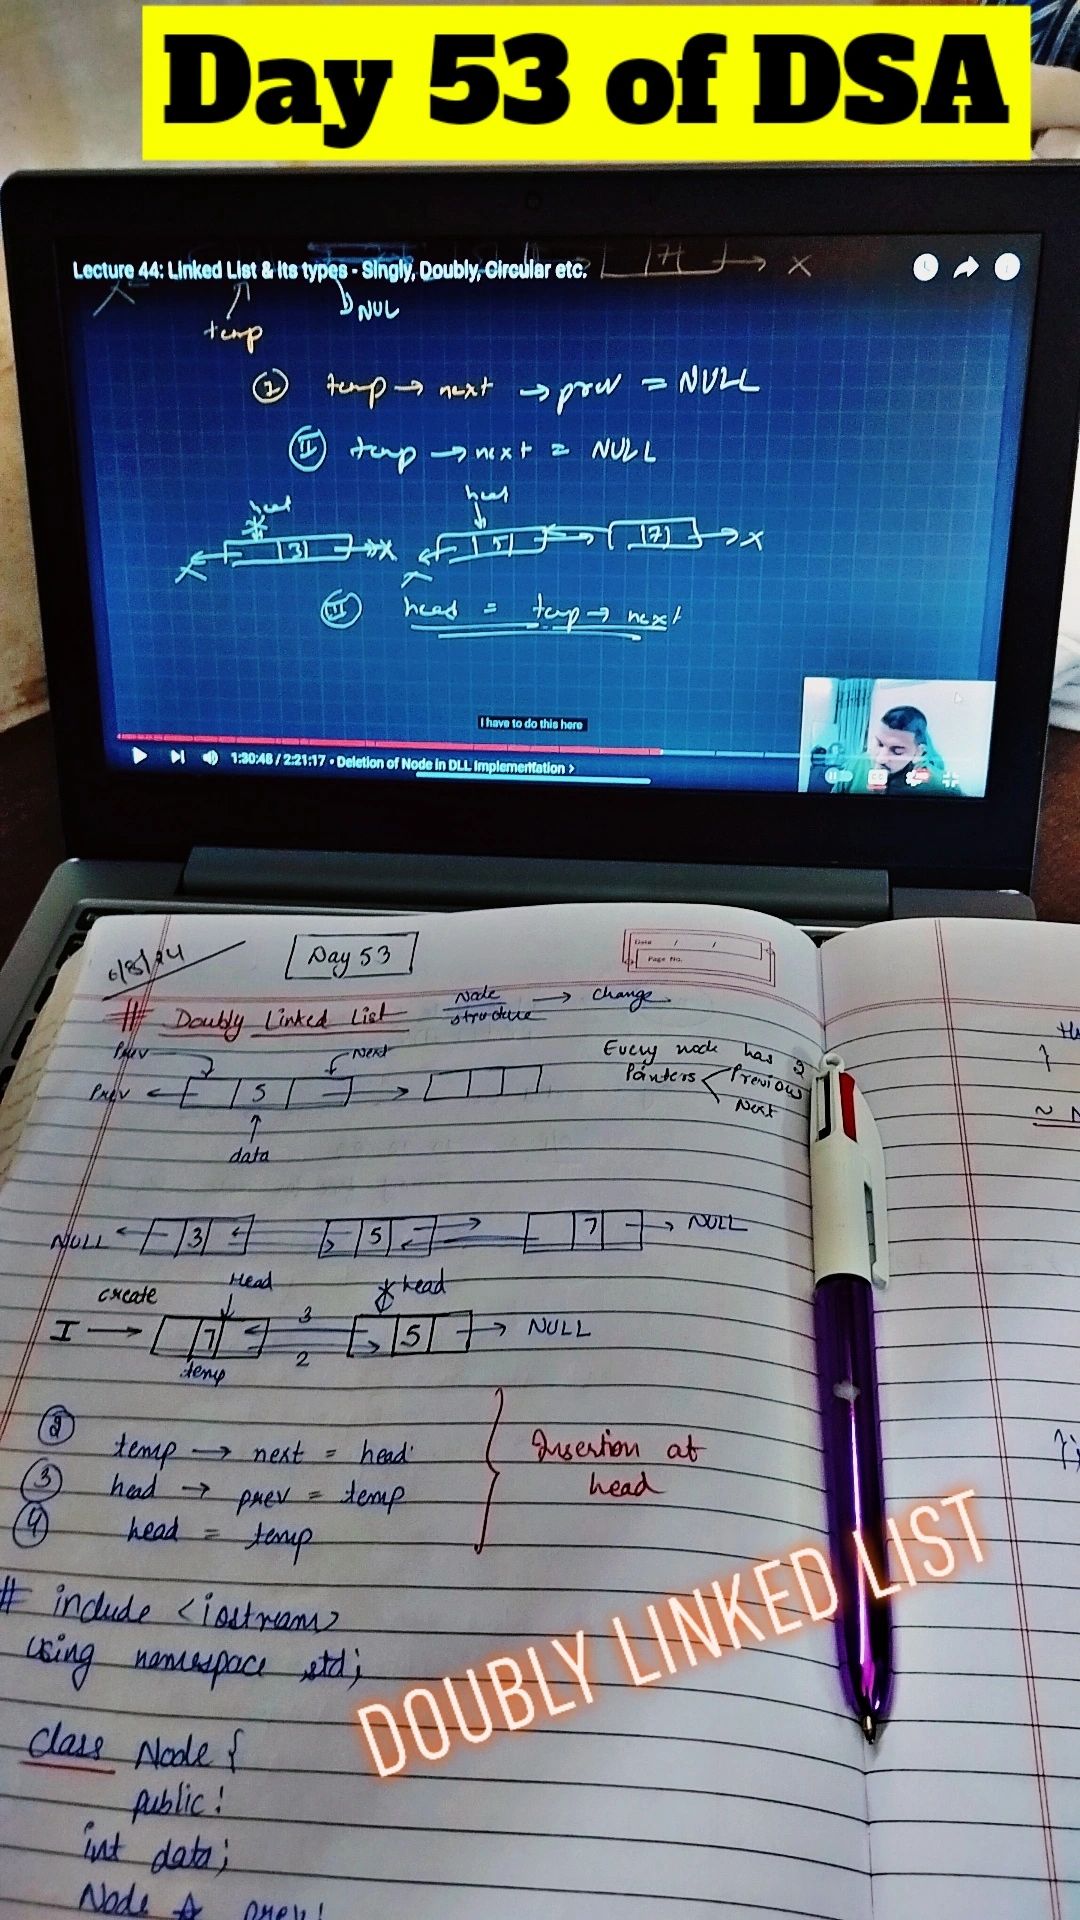 Day 53 of DSA
Lecture 44: Linked List & its types - Singly, Doubly, Circular etc.
7 → X
NUL
temp
I temp → next → prev = NULL
II temp → next = NULL
head head
X 3 X 5 7 X
III head = temp → next
I have to do this here
1:30:48 / 2:21:17 • Deletion of Node in DLL Implementation >
6/8/24 Day 53
Date / /
Page No.
# Doubly Linked List Node structure → change
Prev Next
Every node has 2
Pointers Previous
Next
Prev ← 5 →
data
NULL ← 3 5 7 → NULL
create Head head
I → 7 3 5 → NULL
temp 2
2 temp → next = head
3 head → prev = temp
4 head = temp
Insertion at
head
# include <iostream>
using namespace std;
DOUBLY LINKED LIST
class Node {
public:
int data;
Node * prev;